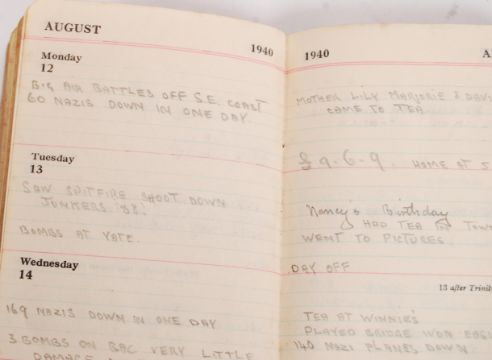 AUGUST 1940
Monday
12
BIG AIR BATTLES OFF S.E. COAST
60 NAZIS DOWN IN ONE DAY
Tuesday
13
SAW SPITFIRE SHOOT DOWN
JUNKERS '88'.
BOMBS AT YATE.
Wednesday
14
169 NAZIS DOWN IN ONE DAY
3 BOMBS ON BAC VERY LITTLE
DAMAGE
1940 A
MOTHER LILY MARJORIE &
CAME TO TEA
£9-6-9. HOME AT 5
Nancy's Birthday
HAD TEA IN
WENT TO PICTURES.
DAY OFF
13 after Trinit
TEA AT WINNIE'S
PLAYED BRIDGE WON
140 NAZI PLANES DOWN